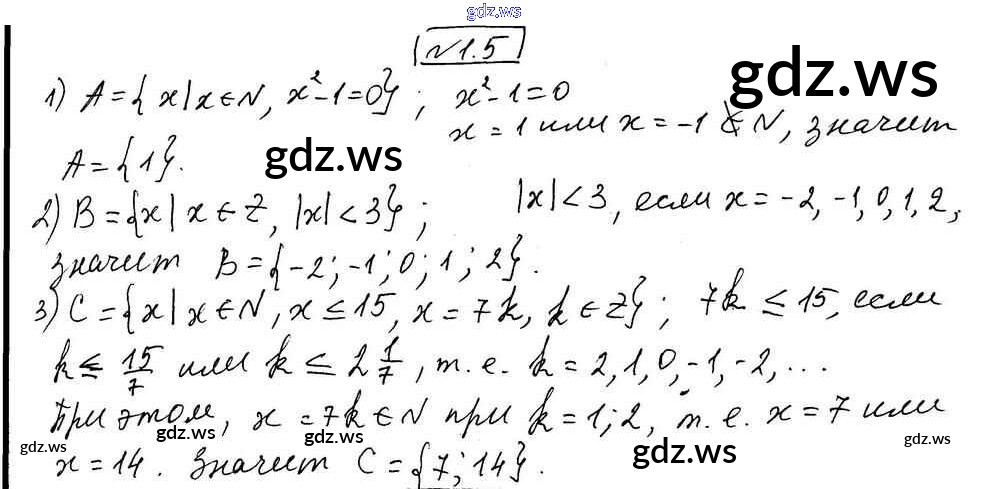 gdz.ws
№1.5
gdz.ws
1) A={x|x∈N, x²-1=0}; x²-1=0
x=1 или x=-1∉N, значит
gdz.ws
A={1}.
2) B={x|x∈Z, |x|<3}; |x|<3, если x=-2,-1,0,1,2,
значит B={-2;-1;0;1;2}.
3) C={x|x∈N, x≤15, x=7k, k∈Z}; 7k≤15, если
k≤15/7 или k≤2 1/7, т.е. k=2,1,0,-1,-2,...
При этом, x=7k∈N при k=1;2, т.е. x=7 или
gdz.ws gdz.ws gdz.ws gdz.ws
x=14. Значит C={7;14}.